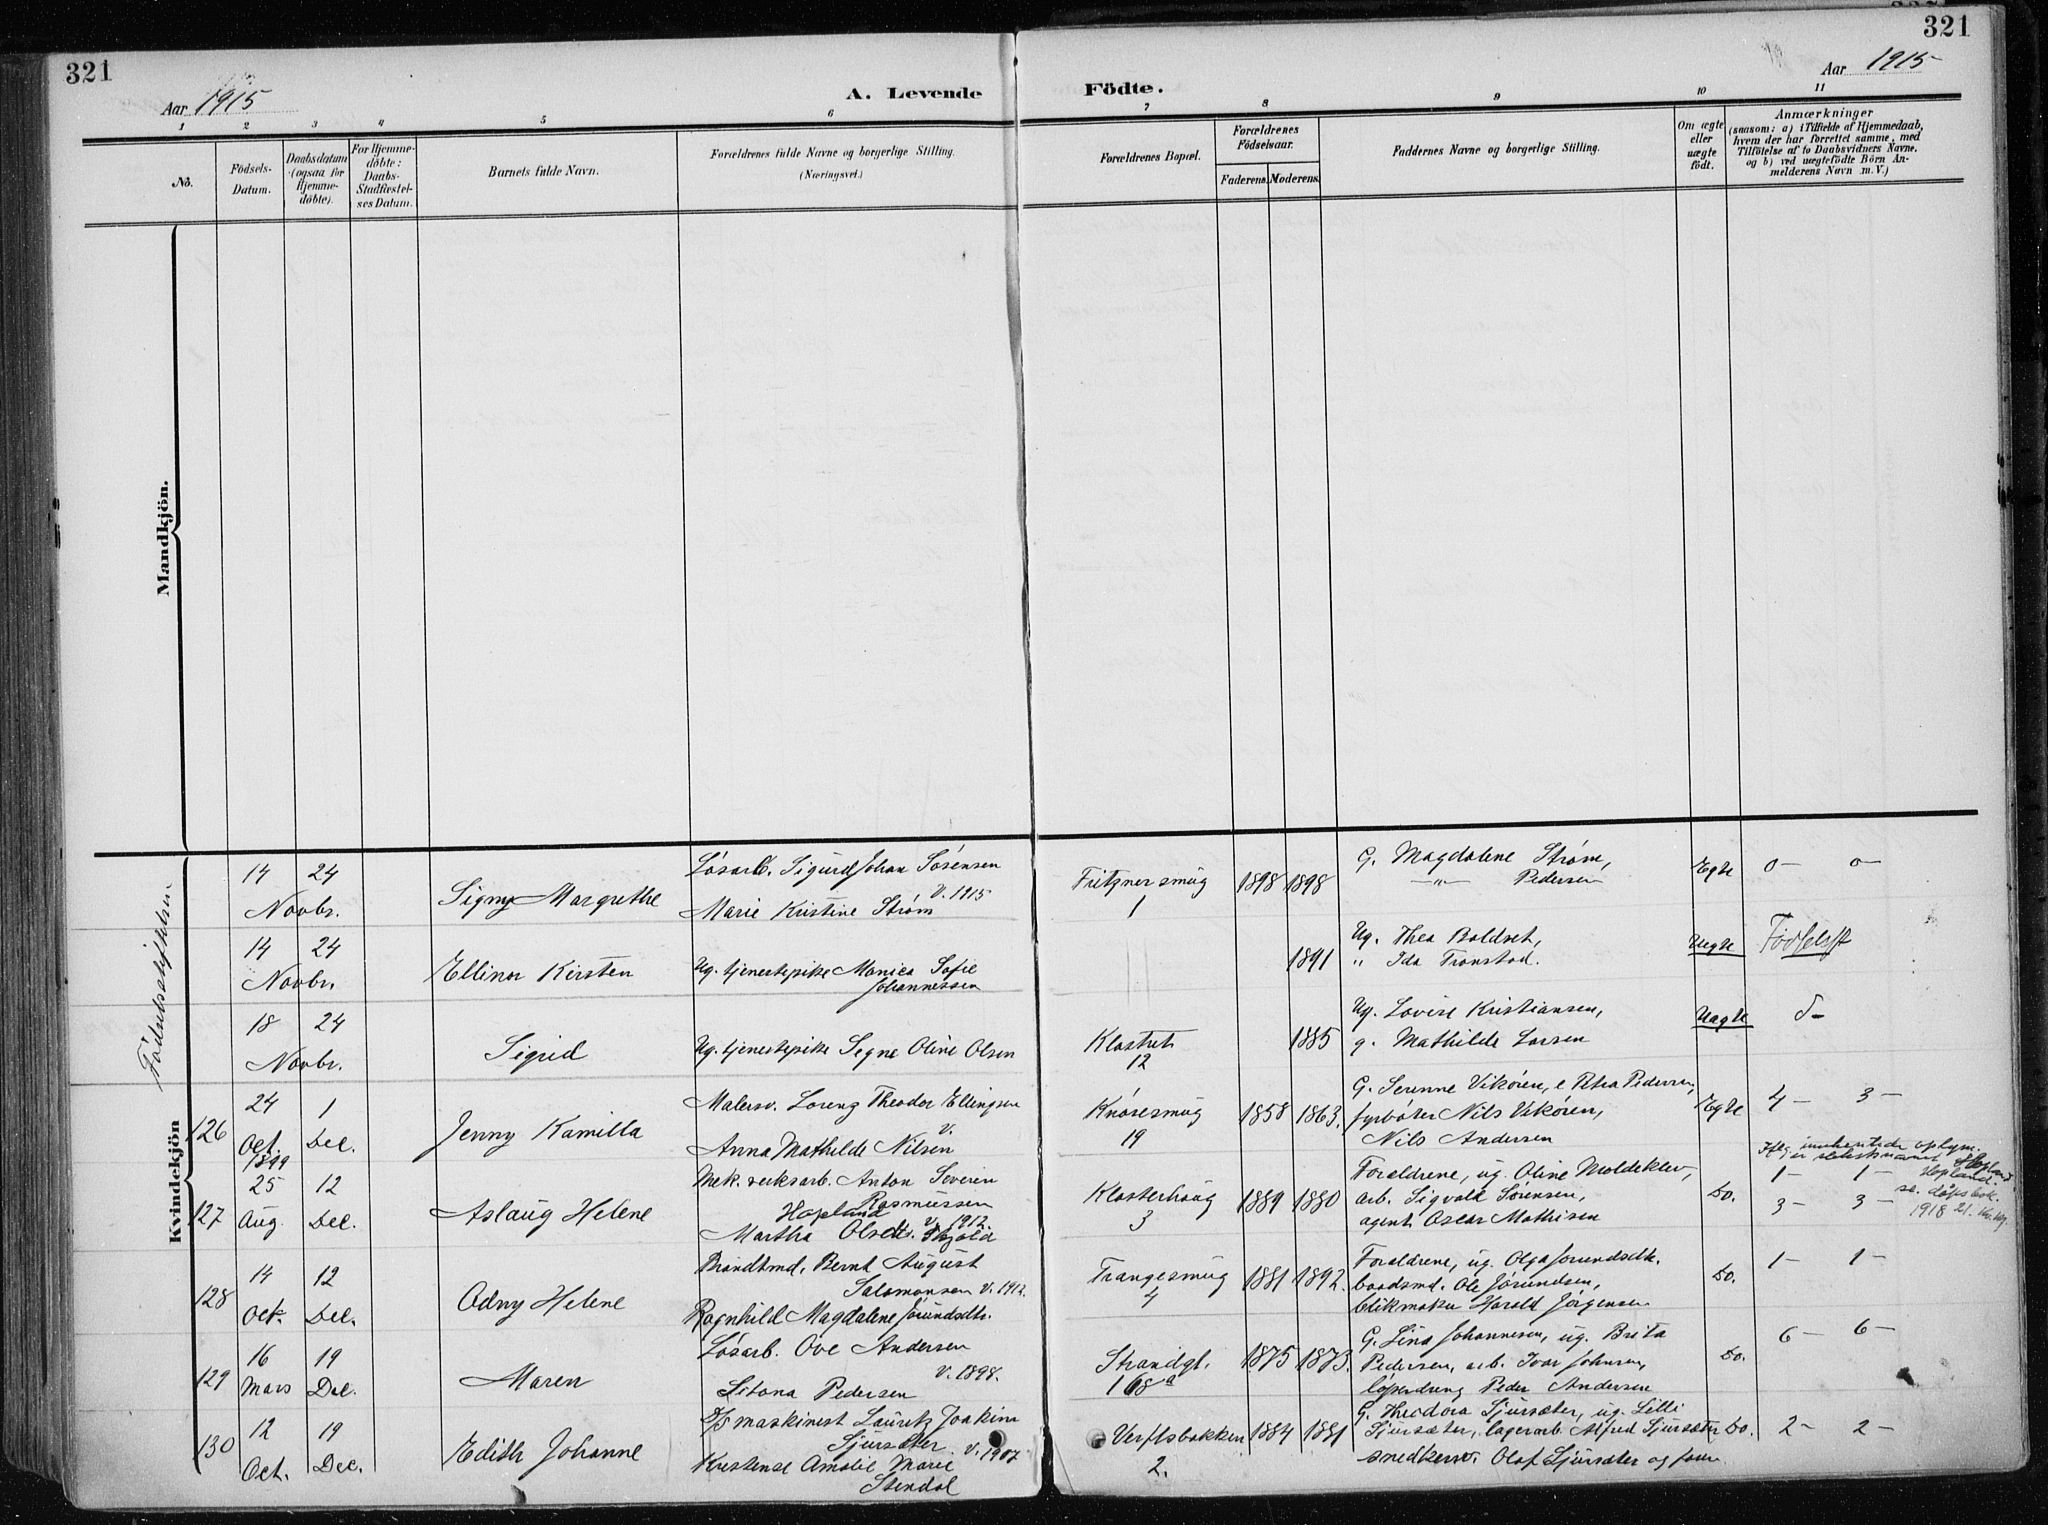 321
321
Aar 1915
A. Levende Födte.
Aar 1915
1 2 3 4 5 6 7 8 9 10 11
No.
Födsels-
Datum.
Daabsdatum
(ogsaa for
Hjemme-
døbte).
For Hjemme-
døbte:
Daabs-
Stadfæstel-
ses Datum.
Barnets fulde Navn.
Forældrenes fulde Navne og borgerlige Stilling.
(Næringsvei.)
Forældrenes Bopæl.
Forældrenes
Fødselsaar.
Faderens. Moderens.
Faddernes Navne og borgerlige Stilling.
Om ægte
eller
uægte
født.
Anmærkninger
(saasom: a) i Tilfælde af Hjemmedaab,
hvem der har forrettet samme, med
Tilføielse af to Daabsvidners Navne.
og b) ved uægtefødte Börn An-
melderens Navn m. V.)
Mandkjön.
Kvindekjön
Fødselsstiftelsen
14 24
Novbr.
Signy Margrethe
Løsarb. Sigurd Johan Sørensen
V. 1915
Marie Kristine Strøm
Fritznersmug
1
1898 1898
G. Magdalene Strøm,
—"— Pedersen
Egte
0 — 0 —
14 24
Novbr.
Ellinor Kirsten
Ug. tjenestepike Monica Sofie
Johannessen
1891
Ug. Thea Boldvet,
" Ida Tronstad.
Uegte
Fødselsst
18 24
Novbr.
Sigrid
Ug. tjenestepike Segne Oline Olsen
Klostret
12
1885
Ug. Lovise Kristiansen,
g. Mathilde Larsen
Uegte
126
24 1
Oct. Dec.
1899
Jenny Kamilla
Malersv. Lorenz Theodor Ellingsen
V.
Anna Mathilde Nilsen
Knøsesmug
19
1858 1863.
G. Serenne Vikøren, e Petra Pedersen,
fyrbøter Nils Vikøren,
Nils Andersen
Egte
4 — 3 —
127
25 12
Aug. Dec.
Aslaug Helene
Mek. verksarb. Anton Severin
Rasmussen
Hopland
V. 1912.
Martha Olsdt. Skjold
Klosterhaug
3
1889 1880
Forældrene, ug. Oline Moldeklev,
arb. Sigvald Sørensen,
agent Oscar Mathisen
Do.
Hopland
1 — 1 — Hopland
se. dåpsbok.
3 — 3 — 1918
128
14 12
Oct. Dec.
Odny Helene
Brandtmd. Bernt August
Salomonsen V. 1912.
Ragnhild Magdalene Jørundsdtr.
Trangesmug
4
1881 1892.
Forældrene, ug. Olga Jorundsdtr.
baadsmd. Ole Jørundsen,
blikmaker Harald Jørgensen
Do.
1 — 1 —
129
16 19
Mars Dec.
Maren
Løsarb. Ove Andersen
V. 1898.
Sitona Pedersen
Strandgt.
168a
1875 1873.
G. Lina Johannesen, ug. Brita
Pedersen, arb. Ivar Johnsen,
løperdreng Peder Andersen
Do.
6 — 6 —
130
12 19
Oct. Dec.
Edith Johanne
D/s maskinest Lauritz Joakim
Sjursæter V. 1907
Kristense Amalie Marie
Stendal
Verftsbakken
2.
1884 1881
G. Theodora Sjursæter, ug. Lilli
Sjursæter, lagerarb. Alfred Sjursæter
snedkersv. Olaf Sjursæter og faren
Do.
2 — 2 —